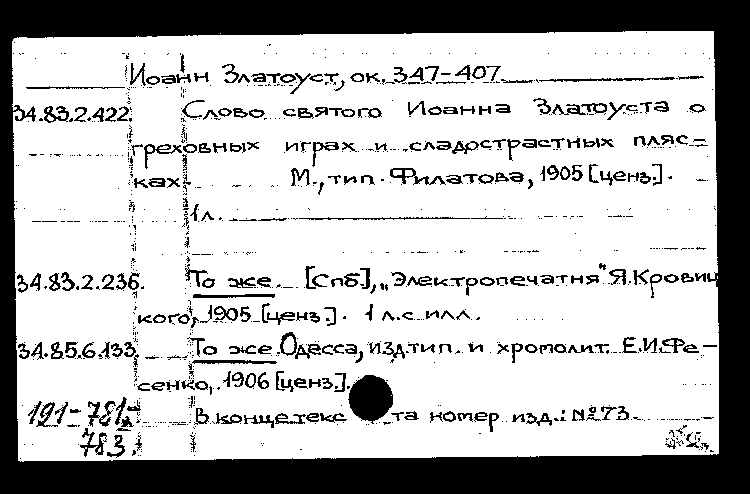 Иоанн Златоуст, ок. 347-407
34.83.2.422. Слово святого Иоанна Златоуста о
греховных играх и сладострастных пляс-
ках. М., тип. Филатова, 1905 [ценз.].
1 л.
34.83.2.236. То же. [Спб], „Электропечатня" Я. Кровиц
кого, 1905 [ценз.]. 1 л. с илл.
34.85.6.133. То же. Одесса, изд. тип. и хромолит. Е.И. Фе-
сенко, 1906 [ценз.].
191-781- В конце текс та номер изд.: №73.
783.